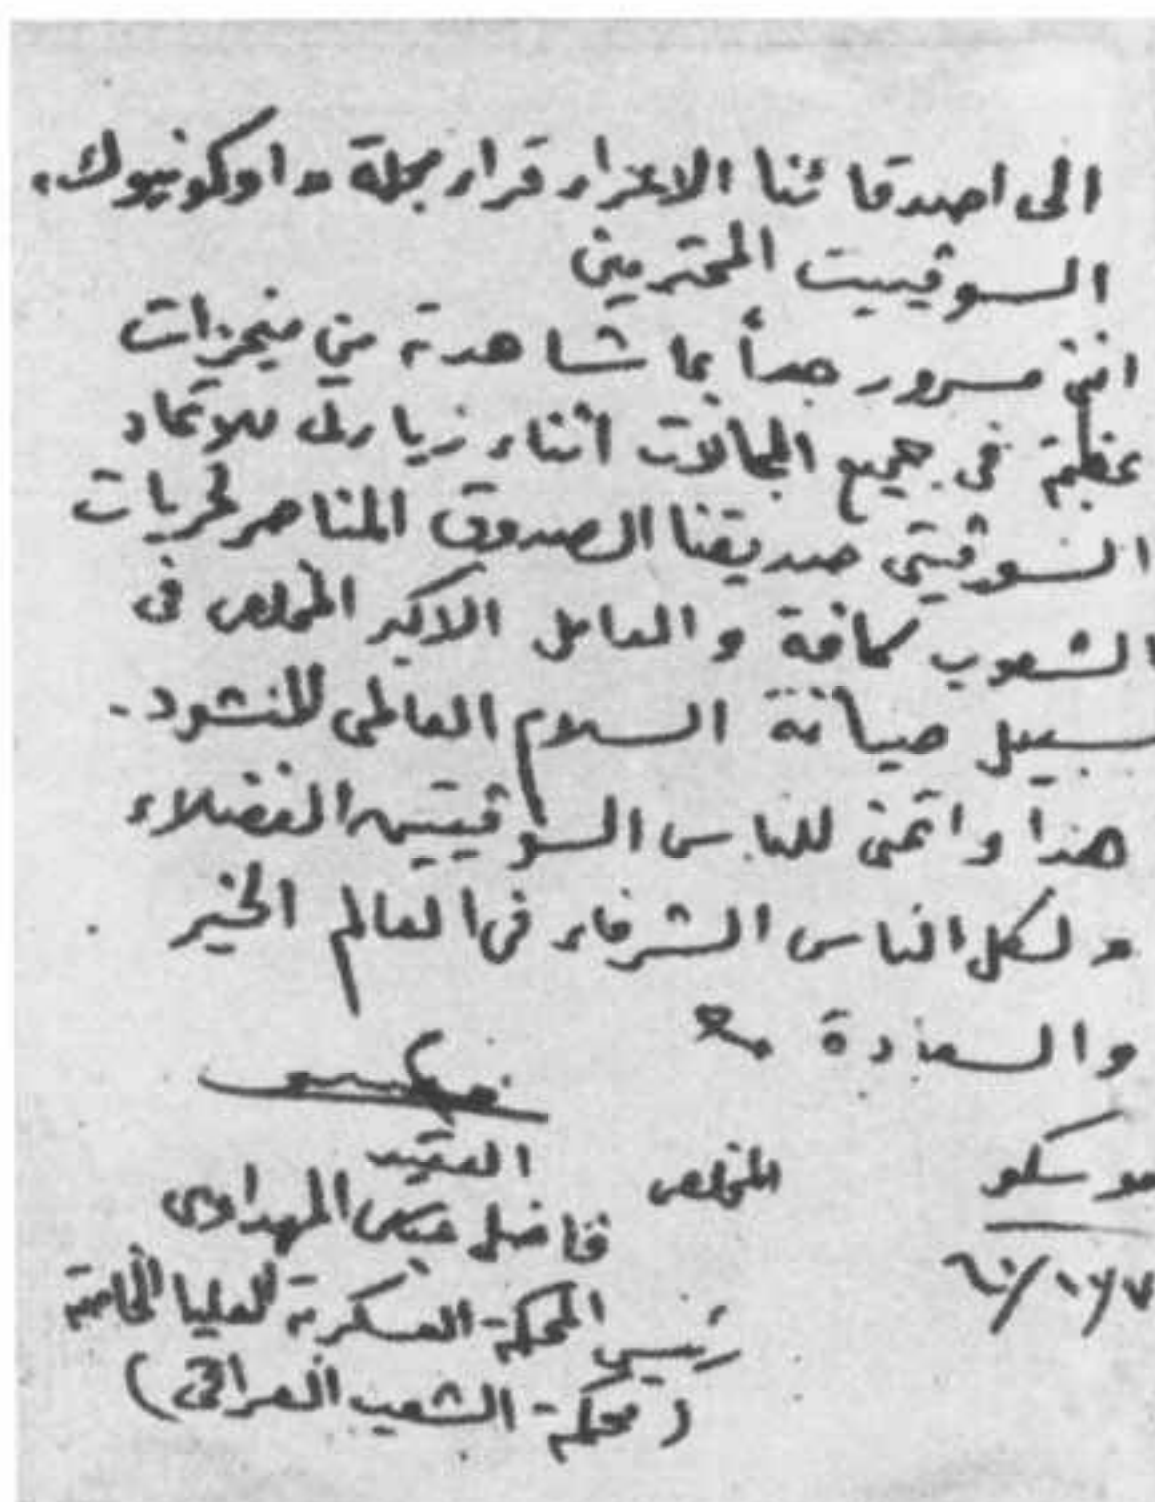 الى اصدقائنا الاعزاء قراء مجلة "اوكونيوك"
السوڤييت المحترمين
انني مسرور جداً بما شاهدته من منجزات
عظيمة في جميع المجالات اثناء زيارتي للاتحاد
السوڤيتي صديقنا الصدوق المناصر لحريات
الشعوب كافة والعامل الاكبر المخلص في
سبيل صيانة السلام العالمي المنشود.
هذا واتمنى للناس السوڤيتيين الفضلاء
ولكل الناس الشرفاء في العالم الخير
والسعادة
المخلص
العقيد
فاضل عباس المهداوي
رئيس المحكمة العسكرية العليا الخاصة
(محكمة الشعب العراقي)
موسكو